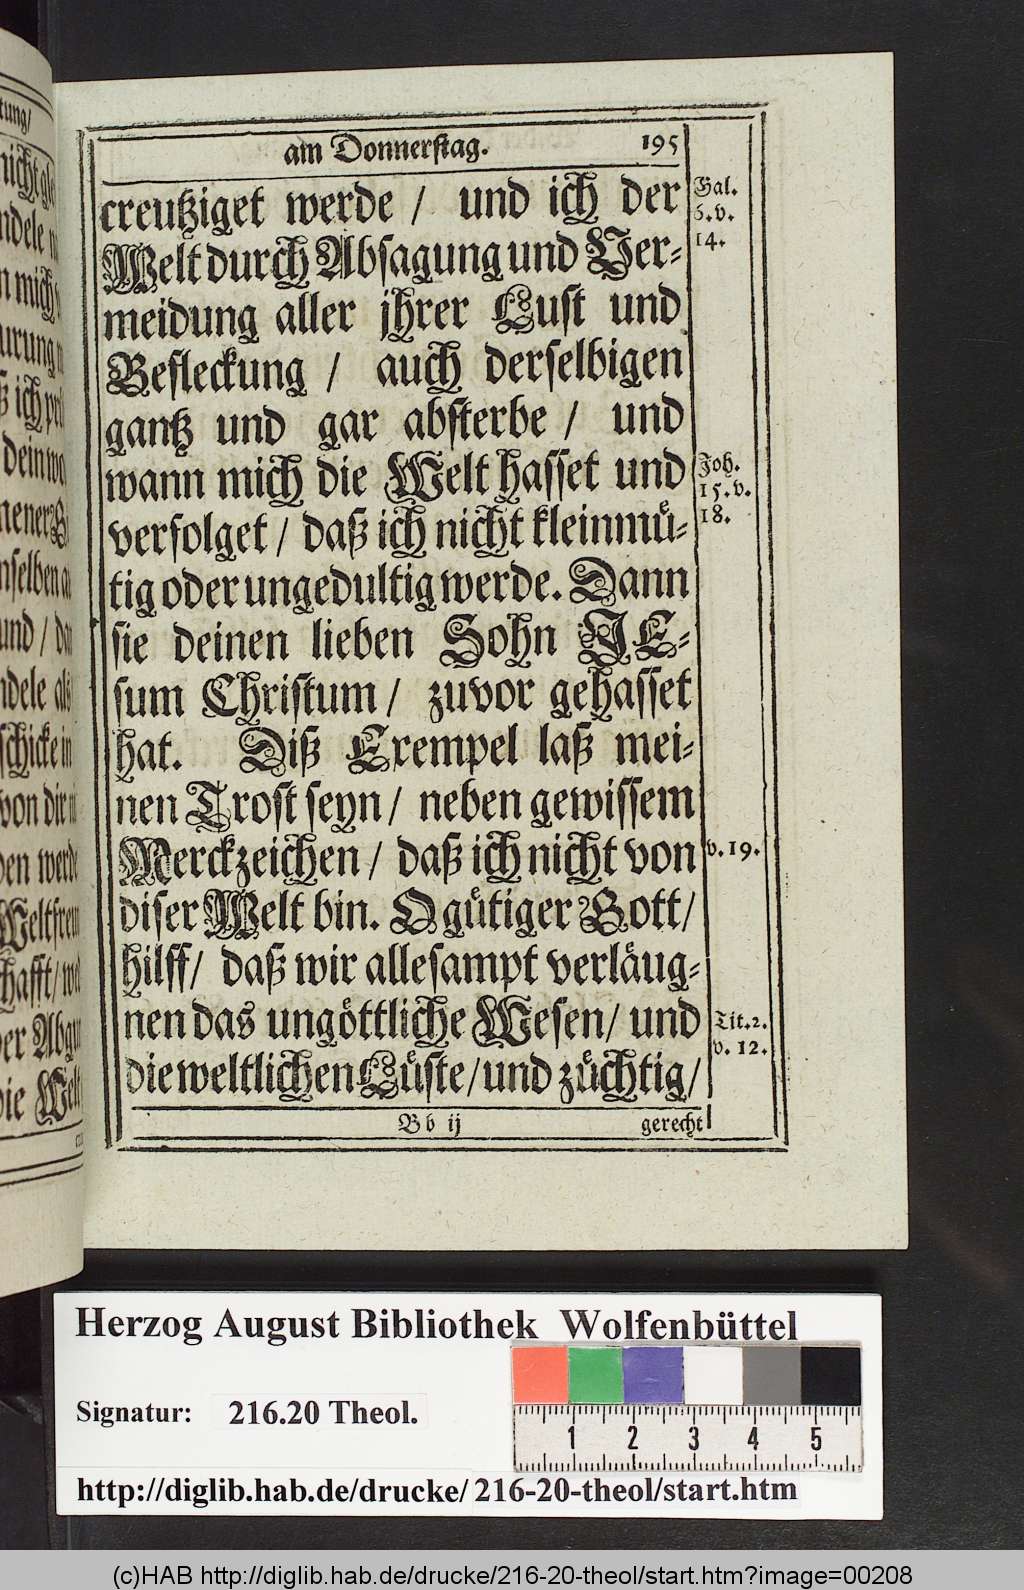 am Donnerstag. 195
creutziget werde / und ich der
Welt durch Absagung und Ver-
meidung aller jhrer Lust und
Befleckung / auch derselbigen
gantz und gar absterbe / und
wann mich die Welt hasset und
verfolget / daß ich nicht kleinmuͤ-
tig oder ungedultig werde. Dann
sie deinen lieben Sohn JE-
sum Christum / zuvor gehasset
hat. Diß Exempel laß mei-
nen Trost seyn / neben gewissem
Merckzeichen / daß ich nicht von
diser Welt bin. O guͤtiger Gott /
hilff / daß wir allesampt verlaͤug-
nen das ungoͤttliche Wesen / und
die weltlichen Luͤste / und zuͤchtig /
Bb ij gerecht
Gal.
6. v.
14.
Joh.
15. v.
18.
v. 19.
Tit. 2.
v. 12.
Herzog August Bibliothek Wolfenbüttel
Signatur: 216.20 Theol.
1 2 3 4 5
http://diglib.hab.de/drucke/216-20-theol/start.htm
(c)HAB http://diglib.hab.de/drucke/216-20-theol/start.htm?image=00208